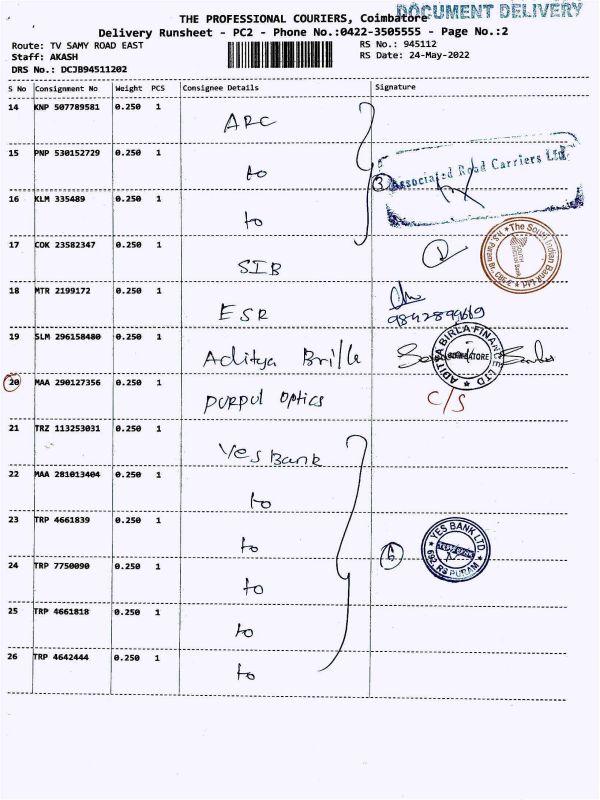 DOCUMENT DELIVERY
THE PROFESSIONAL COURIERS, Coimbatore
Delivery Runsheet - PC2 - Phone No.:0422-3505555 - Page No.:2
Route: TV SAMY ROAD EAST RS No.: 945112
Staff: AKASH RS Date: 24-May-2022
DRS No.: DCJB94511202
S No Consignment No Weight PCS Consignee Details Signature
14 KNP 507789581 0.250 1 ARC
15 PNP 530152729 0.250 1 to
3 Associated Road Carriers Ltd.
16 KLM 335489 0.250 1 to
17 COK 23582347 0.250 1 SIB 1
The South Indian Bank Ltd
18 MTR 2199172 0.250 1 ESR
9842899669
19 SLM 296158480 0.250 1 Aditya Brille
ADITYA BIRLA FINANCE LTD COIMBATORE
20 MAA 290127356 0.250 1 purpul optics C/S
21 TRZ 113253031 0.250 1 Yes Bank
22 MAA 281013404 0.250 1 to
23 TRP 4661839 0.250 1 to
6 YES BANK LTD. YES BANK R S PURAM
24 TRP 7750090 0.250 1 to
25 TRP 4661818 0.250 1 to
26 TRP 4642444 0.250 1 to